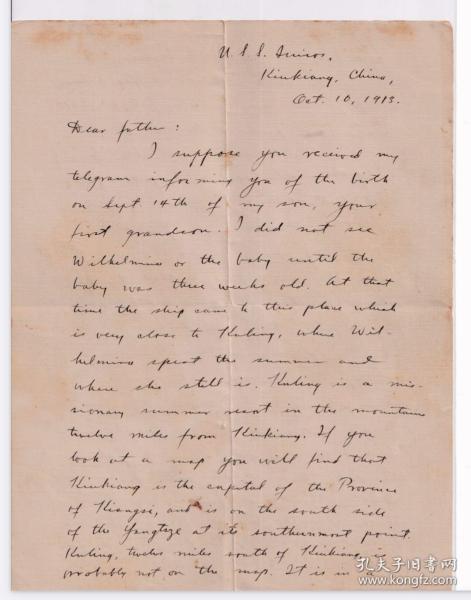 U. S. S. Quiros,
Kiukiang, China,
Oct. 10, 1913.
Dear father:
I suppose you received my
telegram informing you of the birth
on Sept 14th of my son, your
first grandson. I did not see
Wilhelmina or the baby until the
baby was three weeks old. At that
time the ship came to this place which
is very close to Kuling, where Wil-
helmina spent the summer and
where she still is. Kuling is a mis-
sionary summer resort in the mountains
twelve miles from Kiukiang. If you
look at a map you will find that
Kiukiang is the capital of the Province
of Kiangsi, and is on the south side
of the Yangtsze at its southernmost point.
Kuling, twelve miles south of Kiukiang, is
probably not on the map. It is in a
孔夫子旧书网
www.kongfz.com